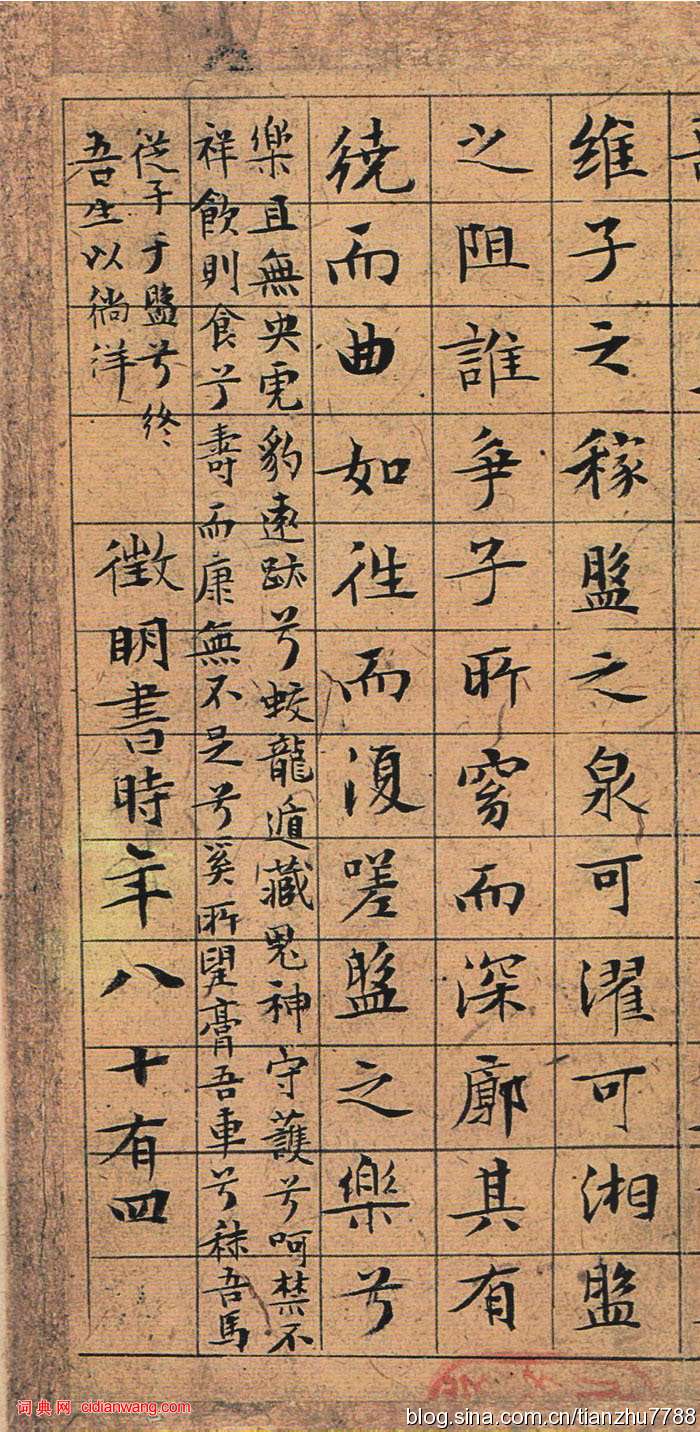 維子之稼盤之泉可濯可湘盤
之阻誰爭子所窈而深廓其有
繞而曲如往而復嗟盤之樂兮
樂且無央虎豹遠跡兮蛟龍遁藏鬼神守護兮呵禁不
祥飲則食兮壽而康無不足兮奚所望膏吾車兮秣吾馬
從子于盤兮終
吾生以徜徉
徵明書時年八十有四
词典网 cidianwang.com
blog.sina.com.cn/tianzhu7788